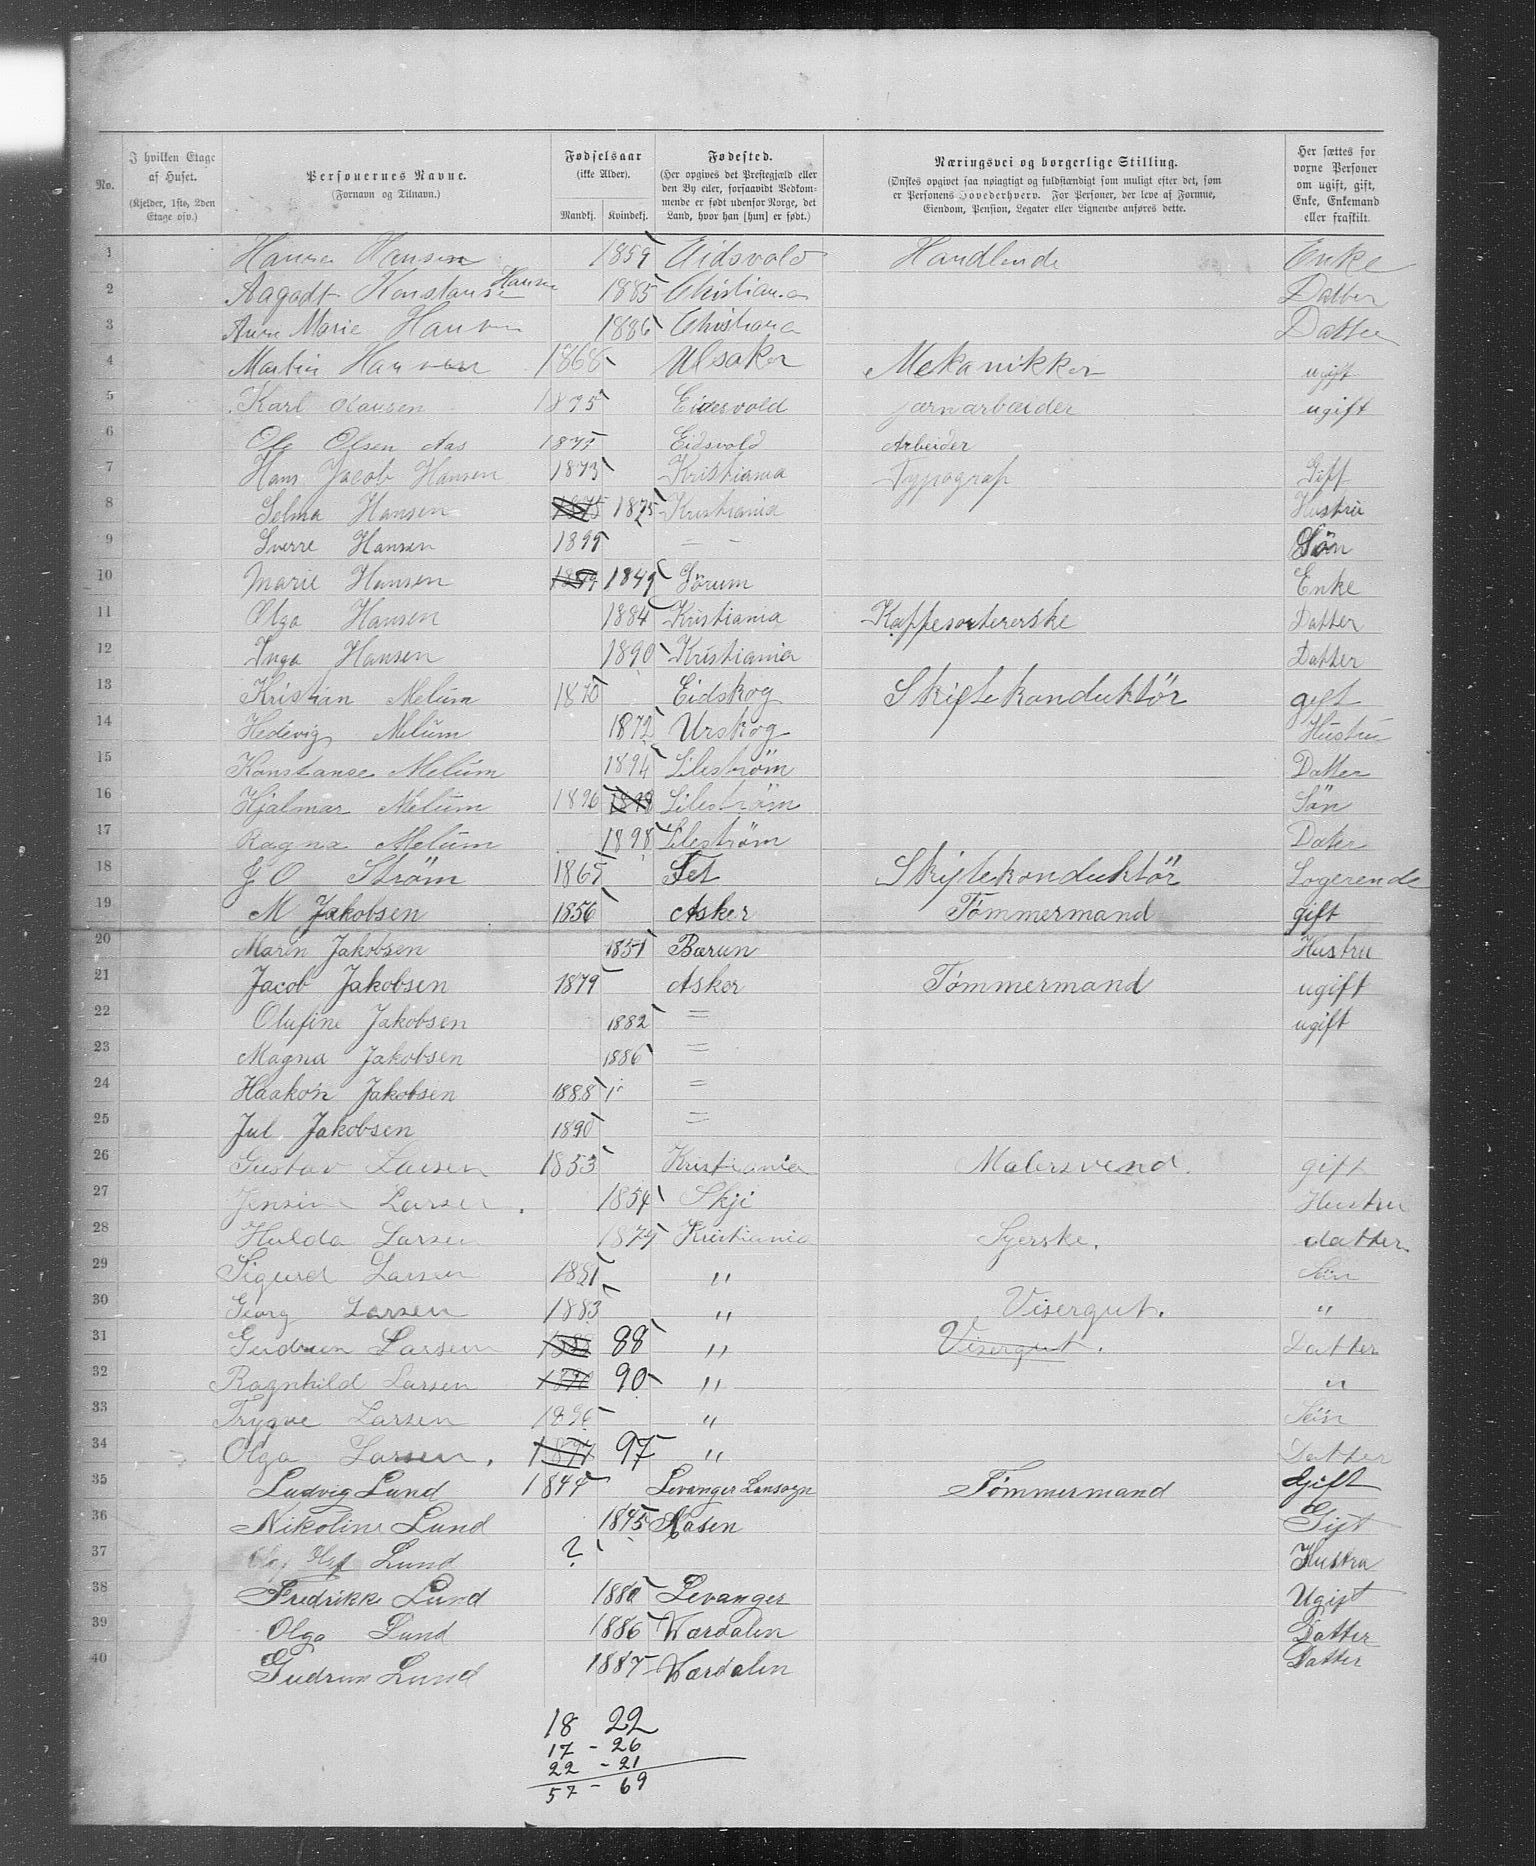 No.
I hvilken Etage af Huset.
(Kjelder, 1ste, 2den Etage osv.)
Personernes Navne.
(Fornavn og Tilnavn.)
Fødselsaar
(ikke Alder).
Mandkj. Kvindekj.
Fødested.
(Her opgives det Prestegjæld eller den By eller, forsaavidt Vedkommende er født udenfor Norge, det Land, hvor han [hun] er født.)
Næringsvei og borgerlige Stilling.
(Ønskes opgivet saa nøiagtigt og fuldstændigt som muligt efter det, som er Personens Hovederhverv. For Personer, der leve af Formue, Eiendom, Pension, Legater eller Lignende anføres dette.
Her sættes for voxne Personer om ugift, gift, Enke, Enkemand eller fraskilt.
1 Hansen 1859 Eidsvold Handlende Enke
2 Aagodt Konstanse Hansen 1885 Christiana Datter
3 Anne Marie Hansen 1886 Christiana Datter
4 Martin Hansen 1868 Ulsaker Mekanikker ugift
5 Karl Hansen 1875 Eidesvold jærnarbæider ugift
6 Ole Olsen Aas 1873 Eidsvold Arbeider
7 Hans Jacob Hansen 1873 Kristiania Typograf Gift
8 Selma Hansen 1875 1875 Kristiania Hustru
9 Sverre Hansen 1899 — - Søn
10 Marie Hansen 1849 Sörum Enke
11 Olga Hansen 1884 Kristiania Kaffesortererske Datter
12 Inga Hansen 1890 Kristiania Datter
13 Kristian Melüm 1870 Eidskog Skiftekonduktör gift
14 Hedevig Melüm 1872 Urskog Hustru
15 Konstanse Melüm 1894 Lileström Datter
16 Hjalmar Melüm 1896 1898 Lileström Sön
17 Ragna Melüm 1898 Lileström Dater
18 J O Ström 1865 Fet Skiftekonduktör Logerende
19 M Jakobsen 1856 Asker Tømmermand gift
20 Maren Jakobsen 1851 Bærun Hustru
21 Jacob Jakobsen 1879 Asker Tømmermand ugift
22 Olufine Jakobsen 1882 = ugift
23 Magna Jakobsen 1886 =
24 Haakon Jakobsen 1888 =
25 Jul Jakobsen 1890 =
26 Gustav Larsen 1853 Kristiania Malersvend. gift
27 Jensine Larsen. 1854 Skji Hustru
28 Hulda Larsen 1879 Kristiania Syerske. datter
29 Sigurd Larsen 1881 " Sön
30 Georg Larsen 1883 " Visergut. "
31 Gudrun Larsen 1888 88 " Visergut. Datter
32 Ragnhild Larsen 1890 90 " "
33 Trygve Larsen 1896 " Sön
34 Olga Larsen. 1897 97 " Datter
35 Ludvig Lund 1844 Levanger Lansogn Tømmermand Gift
36 Nikoline Lund 1845 Aasen Gift
37 Lund ? Hustru
38 Fredrikke Lund 1880 Levanger Ugift
39 Olga Lund 1886 Værdalen Datter
40 Gudrun Lund 1887 Værdalen Datter
18 22
17 - 26
22 - 21
57 - 69